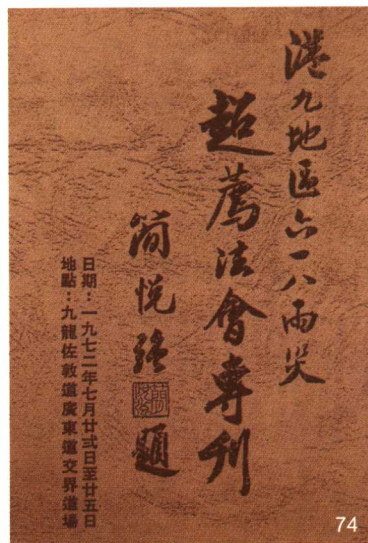 港九地區六一八雨災
超薦法會專刊
簡悅強題
日期：一九七二年七月廿弍日至廿五日
地點：九龍佐敦道廣東道交界道場
74